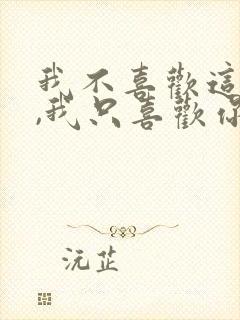 我不喜歡這
,我只喜歡你
沅芷